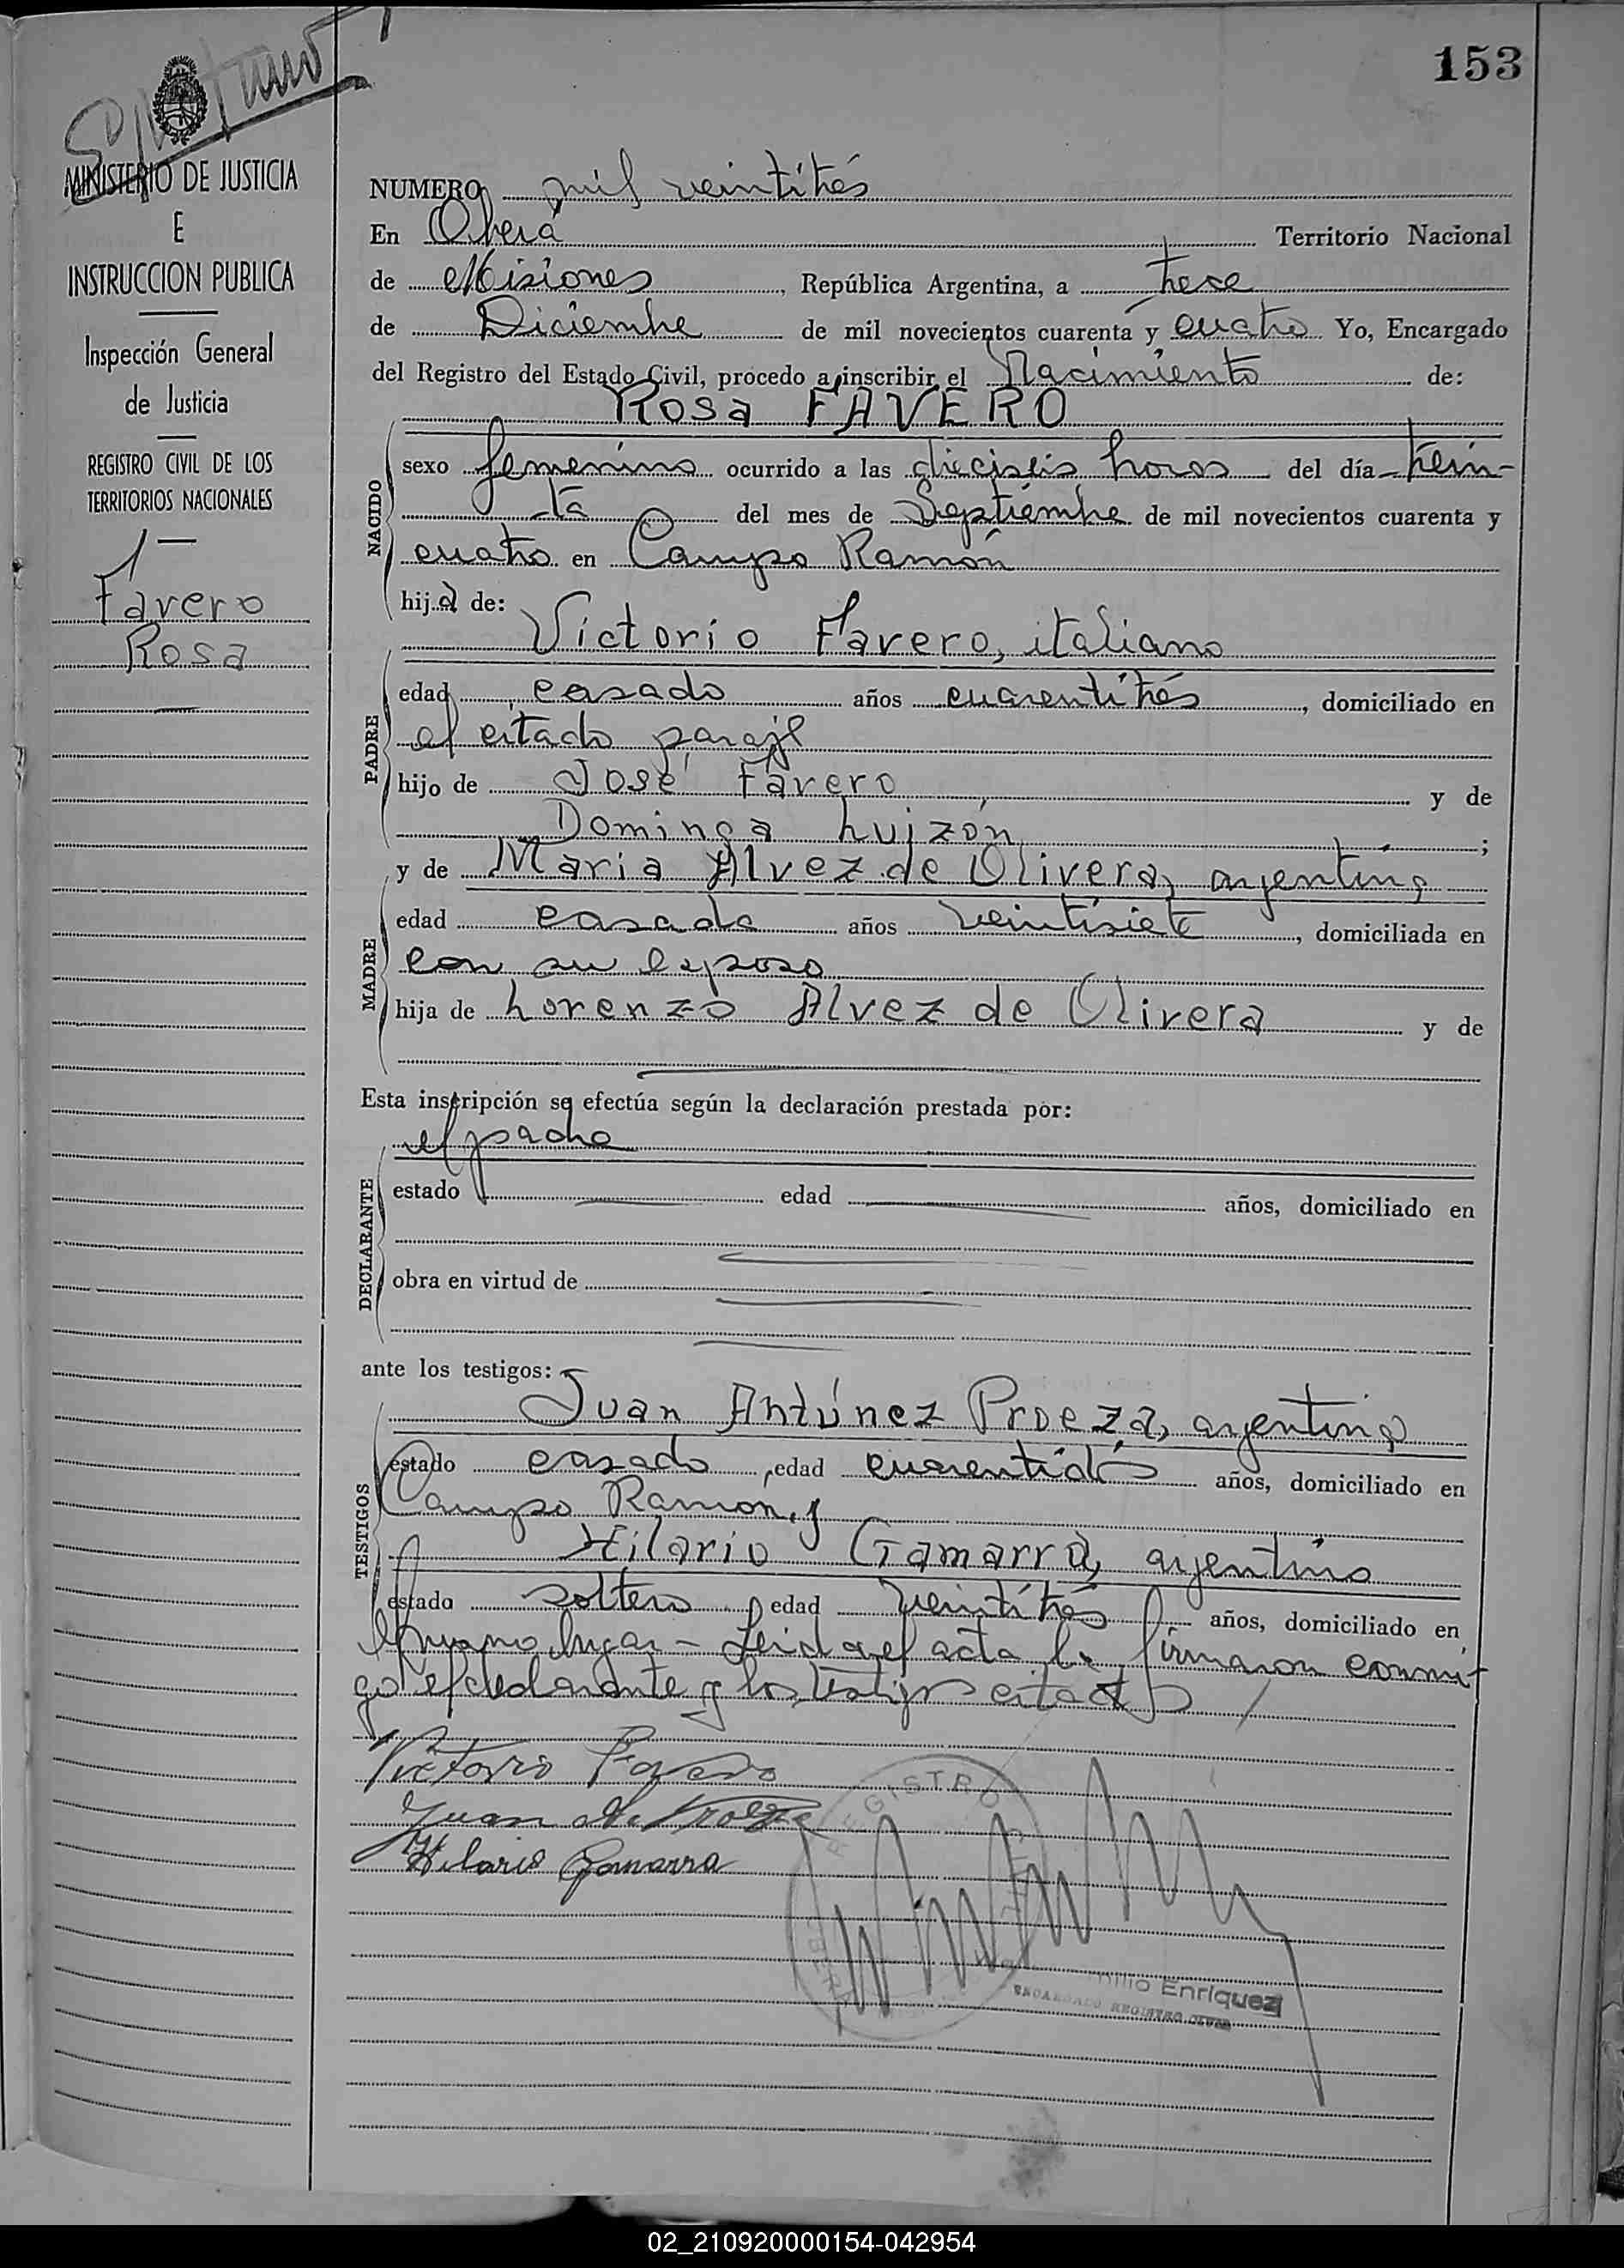 153
MINISTERIO DE JUSTICIA
E
INSTRUCCION PUBLICA
Inspección General
de Justicia
REGISTRO CIVIL DE LOS
TERRITORIOS NACIONALES
1
Favero
Rosa
NUMERO mil veintitrés
En Oberá Territorio Nacional
de Misiones, República Argentina, a trece
de Diciembre de mil novecientos cuarenta y cuatro Yo, Encargado
del Registro del Estado Civil, procedo a inscribir el Nacimiento de:
Rosa FAVERO
NACIDO
sexo femenino ocurrido a las dieciseis horas del día trein-
ta del mes de Septiembre de mil novecientos cuarenta y
cuatro en Campo Ramón
hija de:
Victorio Favero, italiano
PADRE
edad casado años cuarentitrés, domiciliado en
el citado paraje
hijo de José Favero y de
Dominga Luizón ;
y de Maria Alvez de Olivera, argentina
MADRE
edad casada años veintisiete, domiciliada en
con su esposo
hija de Lorenzo Alvez de Olivera y de
Esta inscripción se efectúa según la declaración prestada por:
el padre
DECLARANTE
estado edad años, domiciliado en
obra en virtud de
ante los testigos:
Juan Antúnez Proeza, argentino
TESTIGOS
estado casado, edad cuarentidós años, domiciliado en
Campo Ramón, y
Hilario Gamarra, argentino
estado soltero edad veintitrés años, domiciliado en
el mismo lugar - Leida el acta la firmaron conmi-
go el declarante y los testigos citados
Victorio Favero
Juan
Hilario Gamarra
REGISTRO
Enriquez
ENCARGADO REGISTRO CIVIL
02_210920000154-042954